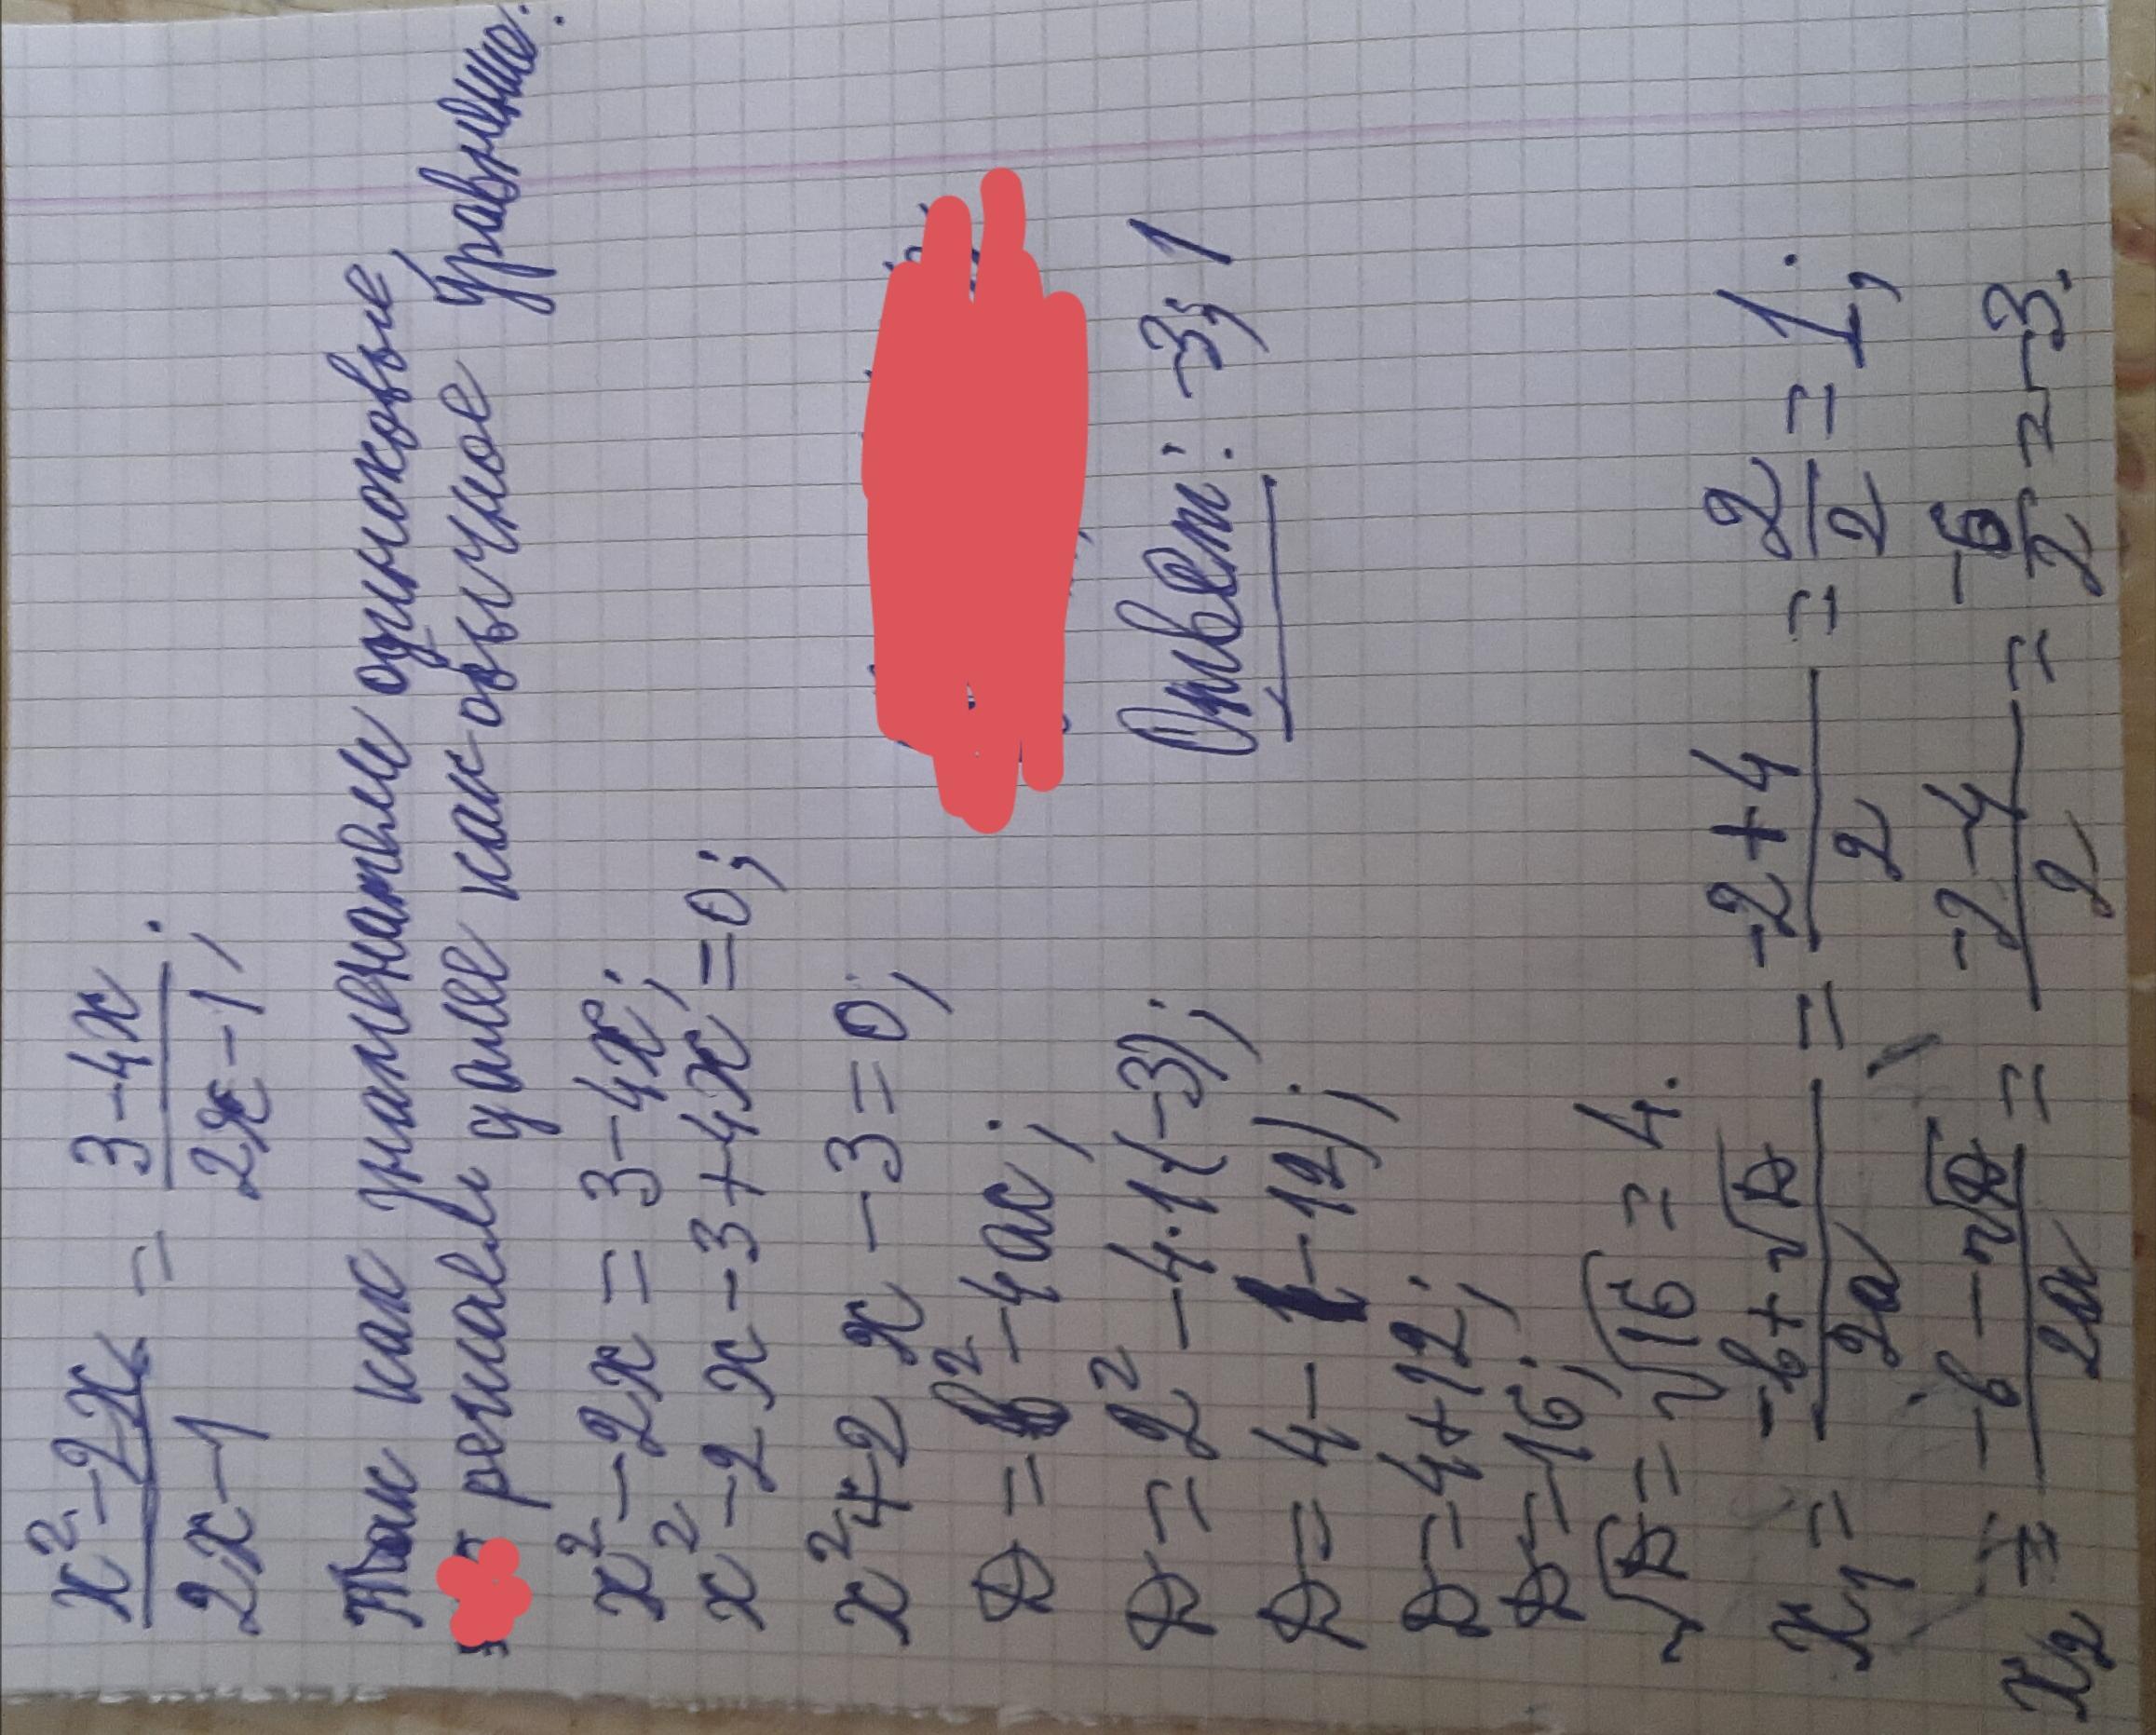 x² - 2x / 2x - 1 = 3 - 4x / 2x - 1;
Так как знаменатели одинаковые,
решаем далее как обычное уравнение:
x² - 2x = 3 - 4x;
x² - 2x - 3 + 4x = 0;
x² + 2x - 3 = 0;
D = b² - 4ac;
D = 2² - 4·1·(-3);
Ответ: -3; 1
D = 4 - (-12);
D = 4 + 12;
D = 16;
√D = √16 = 4.
x₁ = -b + √D / 2a = -2 + 4 / 2 = 2 / 2 = 1;
x₂ = -b - √D / 2a = -2 - 4 / 2 = -6 / 2 = -3.